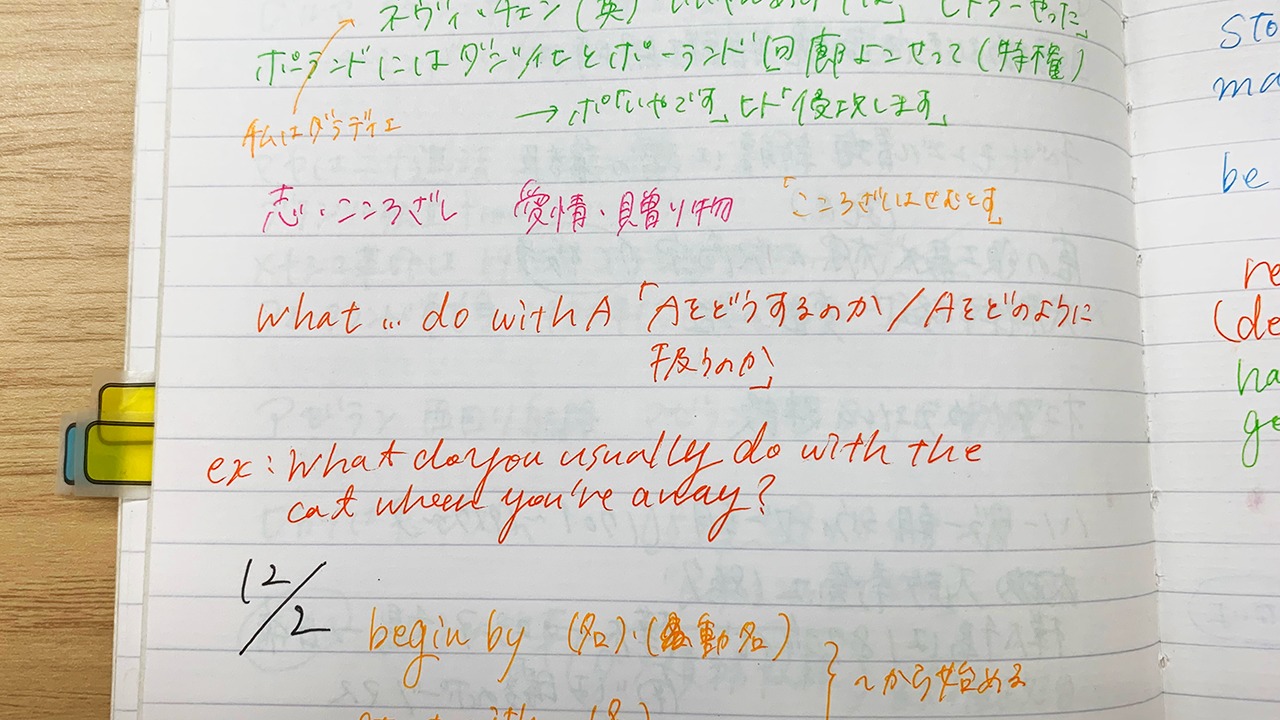 ネヴィ・チェン(英)
ポーランドにはダンツィヒとポーランド回廊よこせって(特権)
→ポ「いやです」ヒト「侵攻します」
私はダラディエ
志・こころざし 愛情・贈り物 「こころざしはせむとす」
What … do with A 「Aをどうするのか/Aをどのように
扱うのか」
ex: What do you usually do with the
cat when you're away?
12/2
begin by (名)・(動名)
〜から始める
sto
ma
be
re
(de
ha
ge